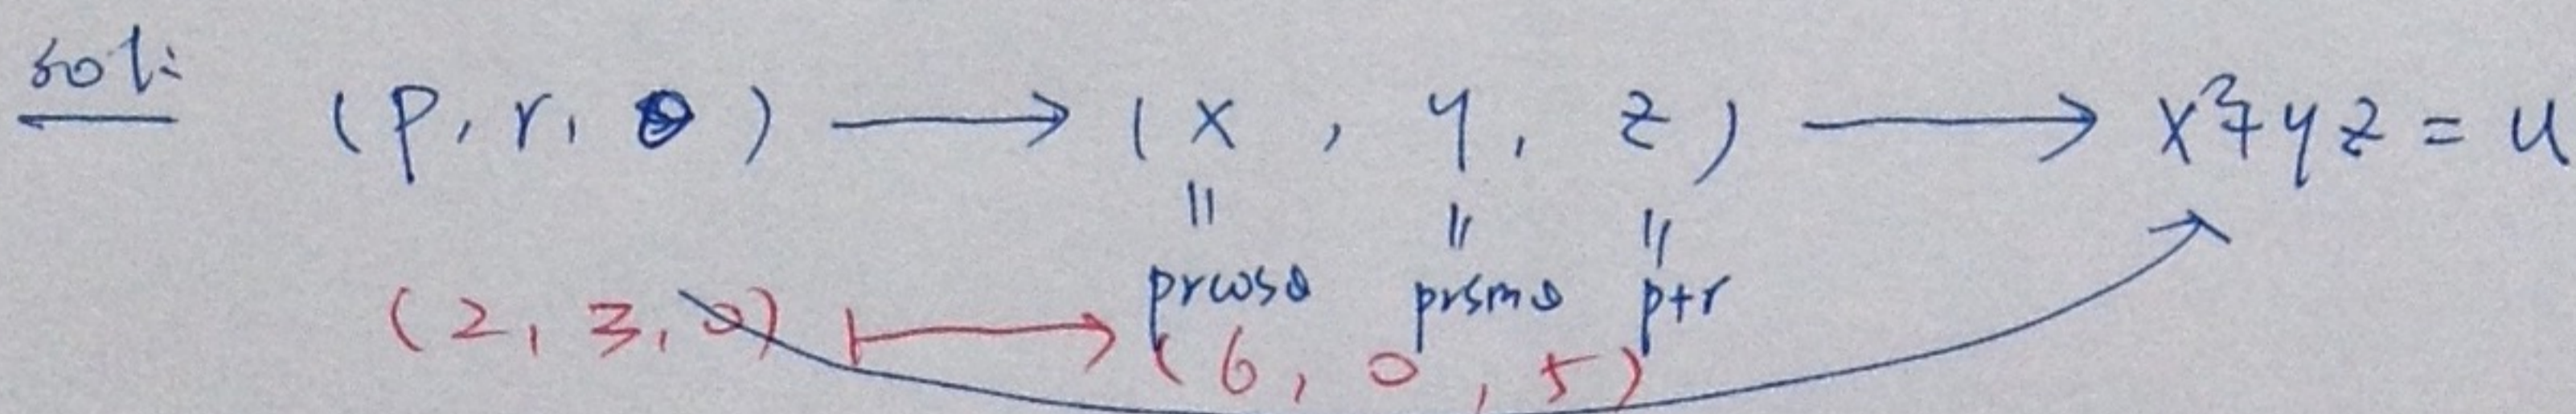 sol:
(p, r, θ) ⟶ (x, y, z) ⟶ x²+yz = u
|| || ||
prcosθ prsinθ p+r
(2, 3, 0) ⟼ (6, 0, 5)